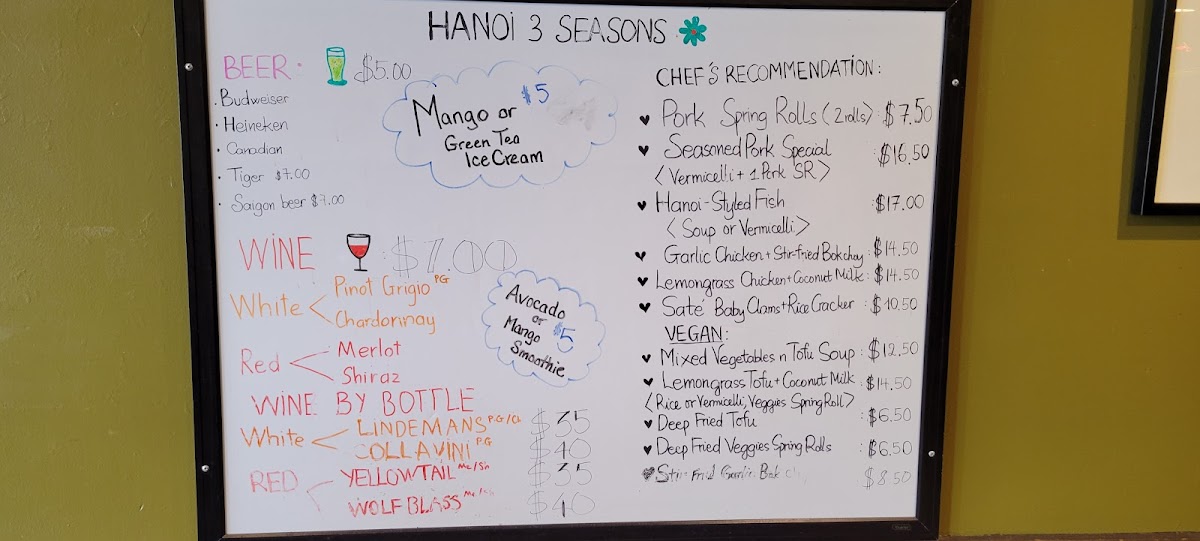 HANOI 3 SEASONS
BEER: $5.00
• Budweiser
• Heineken
• Canadian
• Tiger $7.00
• Saigon beer $7.00
Mango or $5
Green Tea
Ice Cream
WINE : $7.00
White < Pinot Grigio PG
Chardonnay
Red < Merlot
Shiraz
Avocado
or
Mango $5
Smoothie
WINE BY BOTTLE
White < LINDEMANS P.G/Ch $35
COLLAVINI P.G $40
RED < YELLOWTAIL Me/Sh $35
WOLF BLASS $40
CHEF'S RECOMMENDATION:
♥ Pork Spring Rolls (2 rolls): $7.50
♥ Seasoned Pork Special $16.50
<Vermicelli + 1 Pork SR>
♥ Hanoi-Styled Fish : $17.00
<Soup or Vermicelli>
♥ Garlic Chicken + Stir-fried Bokchoy : $14.50
♥ Lemongrass Chicken + Coconut Milk : $14.50
♥ Saté Baby Clams + Rice Cracker : $10.50
VEGAN:
♥ Mixed Vegetables n Tofu Soup : $12.50
♥ Lemongrass Tofu + Coconut Milk : $14.50
<Rice or Vermicelli, Veggies Spring Roll>
♥ Deep Fried Tofu : $6.50
♥ Deep Fried Veggies Spring Rolls : $6.50
♥ Stir Fried Garlic Bok $8.50